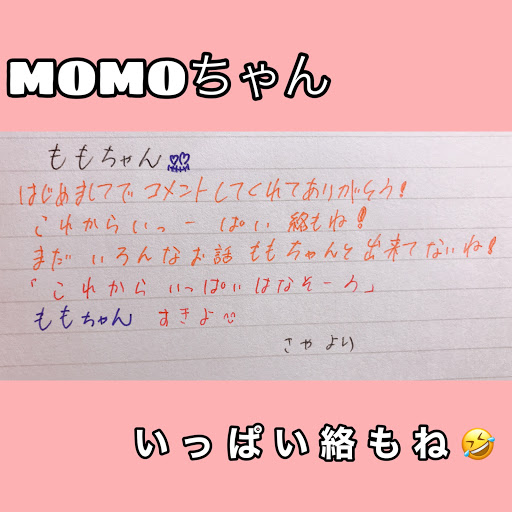 MOMOちゃん
ももちゃん
はじめましてで コメントしてくれてありがそう!
これからいっーぱい 絡もね!
まだ いろんなお話 ももちゃんと出来てないね!
「これから いっぱいはなそーう」
ももちゃん すきよ
さやより
いっぱい絡もね🤣